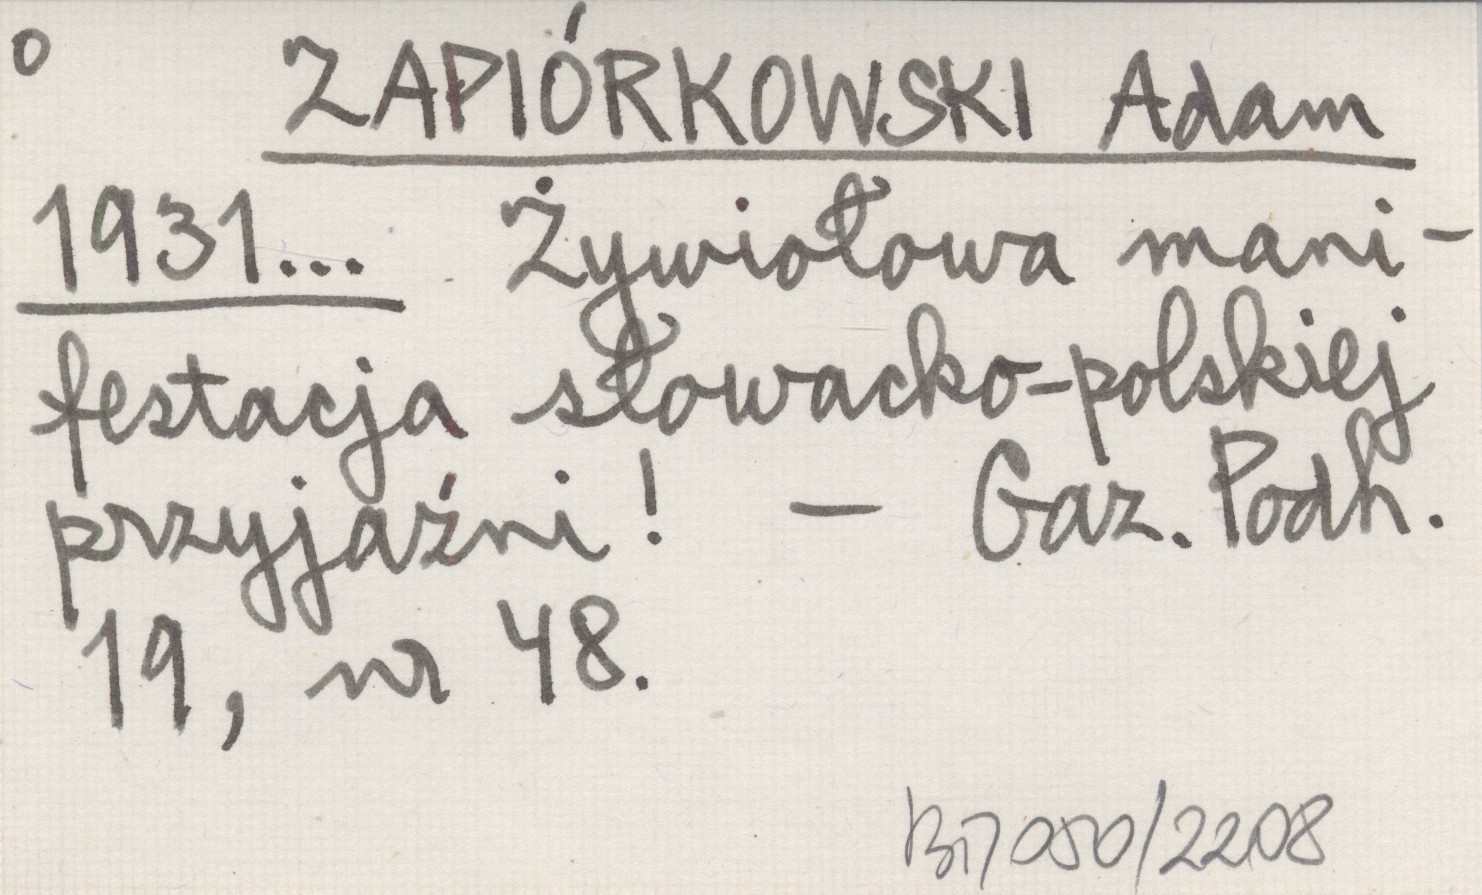 o ZAPIÓRKOWSKI Adam
1931... Żywiołowa mani-
festacja słowacko-polskiej
przyjaźni! – Gaz. Podh.
19, nr 48.
050/2208